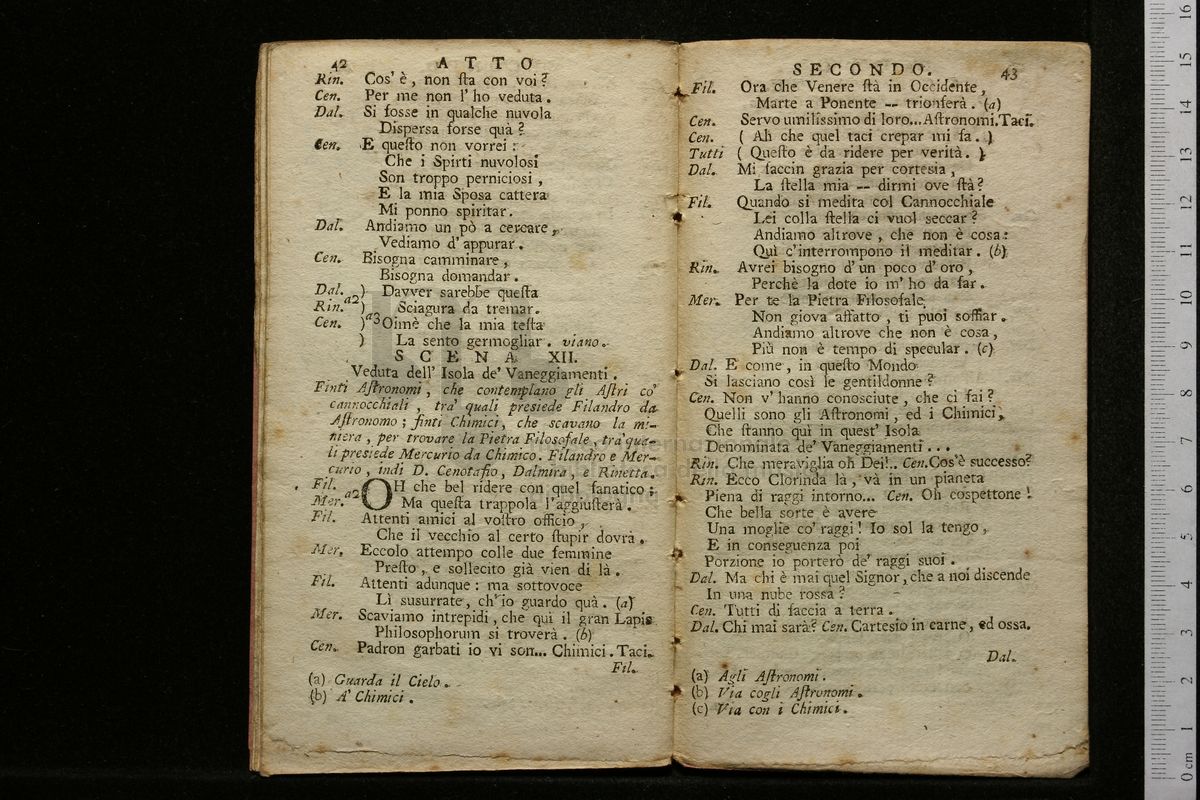 42 ATTO
Rin. Cos' è, non ſta con voi?
Cen. Per me non l' ho veduta.
Dal. Si foſſe in qualche nuvola
Diſperſa forſe quà?
Cen. E queſto non vorrei:
Che i Spirti nuvoloſi
Son troppo pernicioſi,
E la mia Spoſa cattera
Mi ponno ſpiritar.
Dal. Andiamo un pò a cercare,
Vediamo d' appurar.
Cen. Biſogna camminare,
Biſogna domandar.
Dal. ) Davver ſarebbe queſta
Rin. a2 ) Sciagura da tremar.
Cen. ) a3 Oimè che la mia teſta
) La ſento germogliar. viano.
SCENA XII.
Veduta dell' Iſola de' Vaneggiamenti.
Finti Aſtronomi, che contemplano gli Aſtri co'
cannocchiali, tra' quali preſiede Filandro da
Aſtronomo; finti Chimici, che scavano la mi-
niera, per trovare la Pietra Filoſofale, tra' qua-
li preſiede Mercurio da Chimico. Filandro e Mer-
curio, indi D. Cenotafio, Dalmira, e Rinetta.
Fil. OH che bel ridere con quel fanatico;
Mer. a2 Ma queſta trappola l'aggiuſterà.
Fil. Attenti amici al voſtro officio,
Che il vecchio al certo ſtupir dovra.
Mer. Eccolo attempo colle due femmine
Preſto, e ſollecito già vien di là.
Fil. Attenti adunque: ma sottovoce
Lì suſurrate, ch' io guardo quà. (a)
Mer. Scaviamo intrepidi, che quì il gran Lapis
Philoſophorum si troverà. (b)
Cen. Padron garbati io vi son... Chimici. Taci.
Fil.
(a) Guarda il Cielo.
(b) A' Chimici.
SECONDO. 43
Fil. Ora che Venere ſtà in Occidente,
Marte a Ponente -- trionferà. (a)
Cen. Servo umiliſſimo di loro... Aſtronomi. Taci.
Cen. ( Ah che quel taci crepar mi fa. )
Tutti ( Queſto è da ridere per verità. )
Dal. Mi faccin grazia per corteſia,
La ſtella mia -- dirmi ove ſtà?
Fil. Quando si medita col Cannocchiale
Lei colla ſtella ci vuol ſeccar?
Andiamo altrove, che non è coſa:
Quì c'interrompono il meditar. (b)
Rin. Avrei biſogno d' un poco d' oro,
Perchè la dote io m' ho da far.
Mer. Per te la Pietra Filoſofale,
Non giova affatto, ti puoi ſoffiar.
Andiamo altrove che non è coſa,
Più non è tempo di ſpecular. (c)
Dal. E come, in queſto Mondo
Si laſciano così le gentildonne?
Cen. Non v' hanno conoſciute, che ci fai?
Quelli ſono gli Aſtronomi, ed i Chimici,
Che ſtanno quì in queſt' Iſola
Denominata de' Vaneggiamenti...
Rin. Che meraviglia oh Dei!.. Cen. Cos'è ſucceſſo?
Rin. Ecco Clorinda là, và in un pianeta
Piena di raggi intorno... Cen. Oh coſpettone!
Che bella ſorte è avere
Una moglie co' raggi! Io sol la tengo,
E in conſeguenza poi
Porzione io porterò de' raggi ſuoi.
Dal. Ma chi è mai quel Signor, che a noi diſcende
In una nube roſſa?
Cen. Tutti di faccia a terra.
Dal. Chi mai ſarà? Cen. Carteſio in carne, ed oſſa.
Dal.
(a) Agli Aſtronomi.
(b) Via cogli Aſtronomi.
(c) Via con i Chimici.
0 cm 1 2 3 4 5 6 7 8 9 10 11 12 13 14 15 16